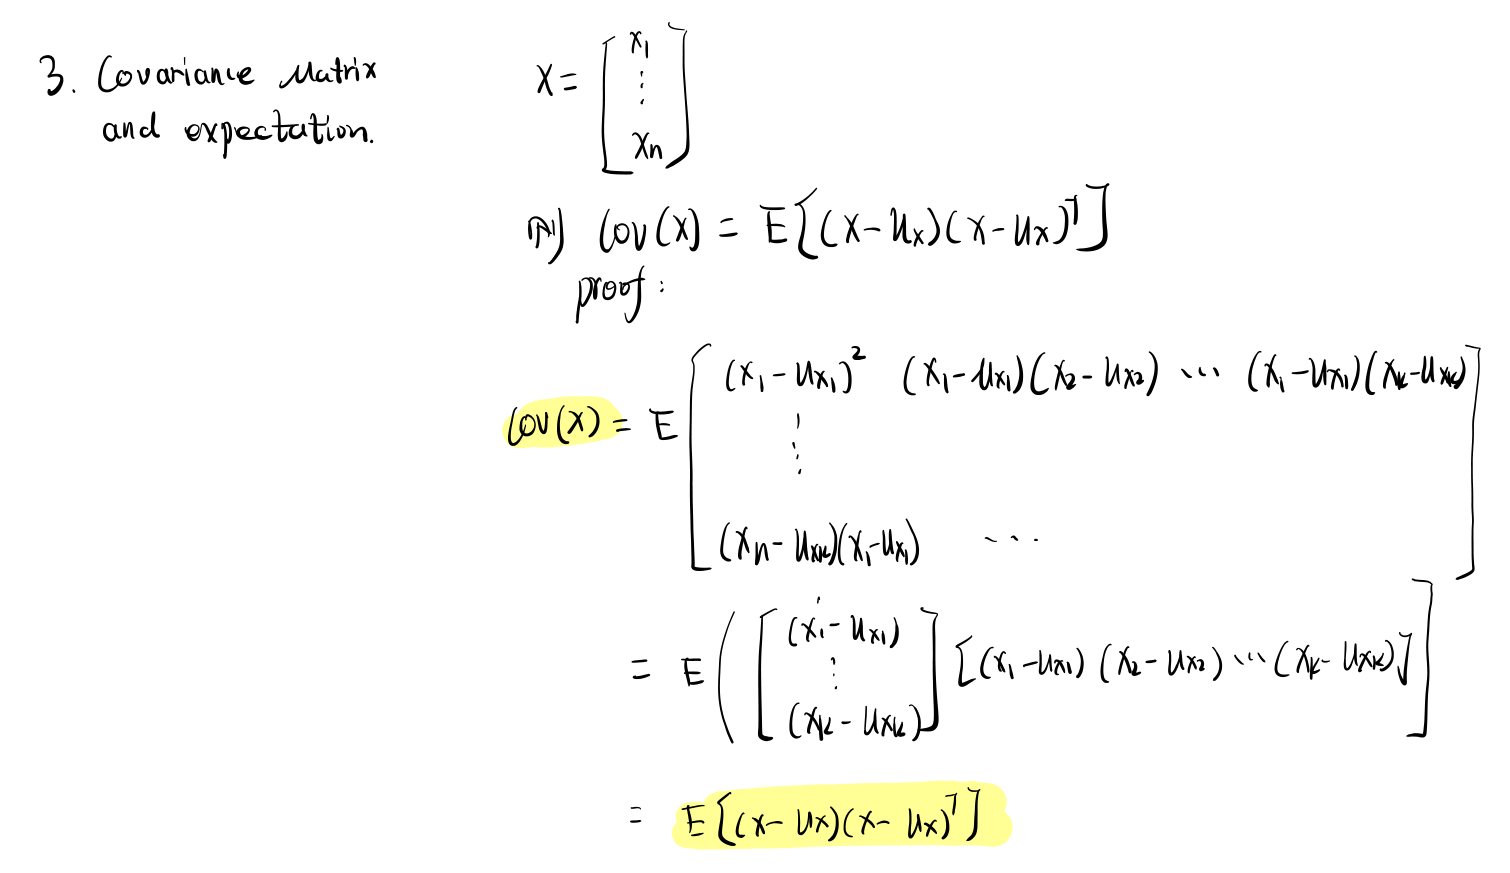 3. Covariance Matrix
and expectation.
X = [x₁ ⋮ xₙ]
(A) Cov(X) = E[(X-uₓ)(X-uₓ)ᵀ]
proof:
Cov(X) = E [(x₁-uₓ₁)² (x₁-uₓ₁)(x₂-uₓ₂) ⋯ (x₁-uₓ₁)(xₖ-uₓₖ)
⋮
(xₙ-uₓₖ)(x₁-uₓ₁) ⋯ ]
= E ([(x₁-uₓ₁) ⋮ (xₖ-uₓₖ)] [(x₁-uₓ₁) (x₂-uₓ₂) ⋯ (xₖ-uₓₖ)]]
= E[(x-uₓ)(x-uₓ)ᵀ]